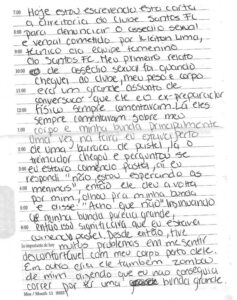 7:00 Hoje estou escrevendo esta carta
a diretoria do Clube Santos FC
8:00 para denunciar o assédio sexual
e verbal cometido por Kleiton Lima,
9:00 técnico da equipe feminino
do Santos FC. Meu primeiro relato
10:00 de assédio sexual foi quando
cheguei ao clube, meu peso e corpo
era um grande assunto de
conversas que ele e o preparador
físico sempre comentaram. Lá eles
sempre comentavam sobre meu
corpo e minha bunda principalmente
uma vez na fara eu estava perto
de uma barraca de pastel, lá o
treinador chegou e perguntou se
eu estava comendo pastel, aí eu
respondi "não estou esperando as
meninas" então ele deu a volta
por mim, olhou pra minha bunda
e disse "Acho que não" insinuando
minha bunda parecia grande,
6:00 então isso significaria que eu estava
comendo pastel desde então tive
muitos problemas em me sentir
desconfortável com meu corpo perto dele.
Em outro dia ele também zombou
de mim dizendo que eu não conseguia
correr por ter uma bunda grande